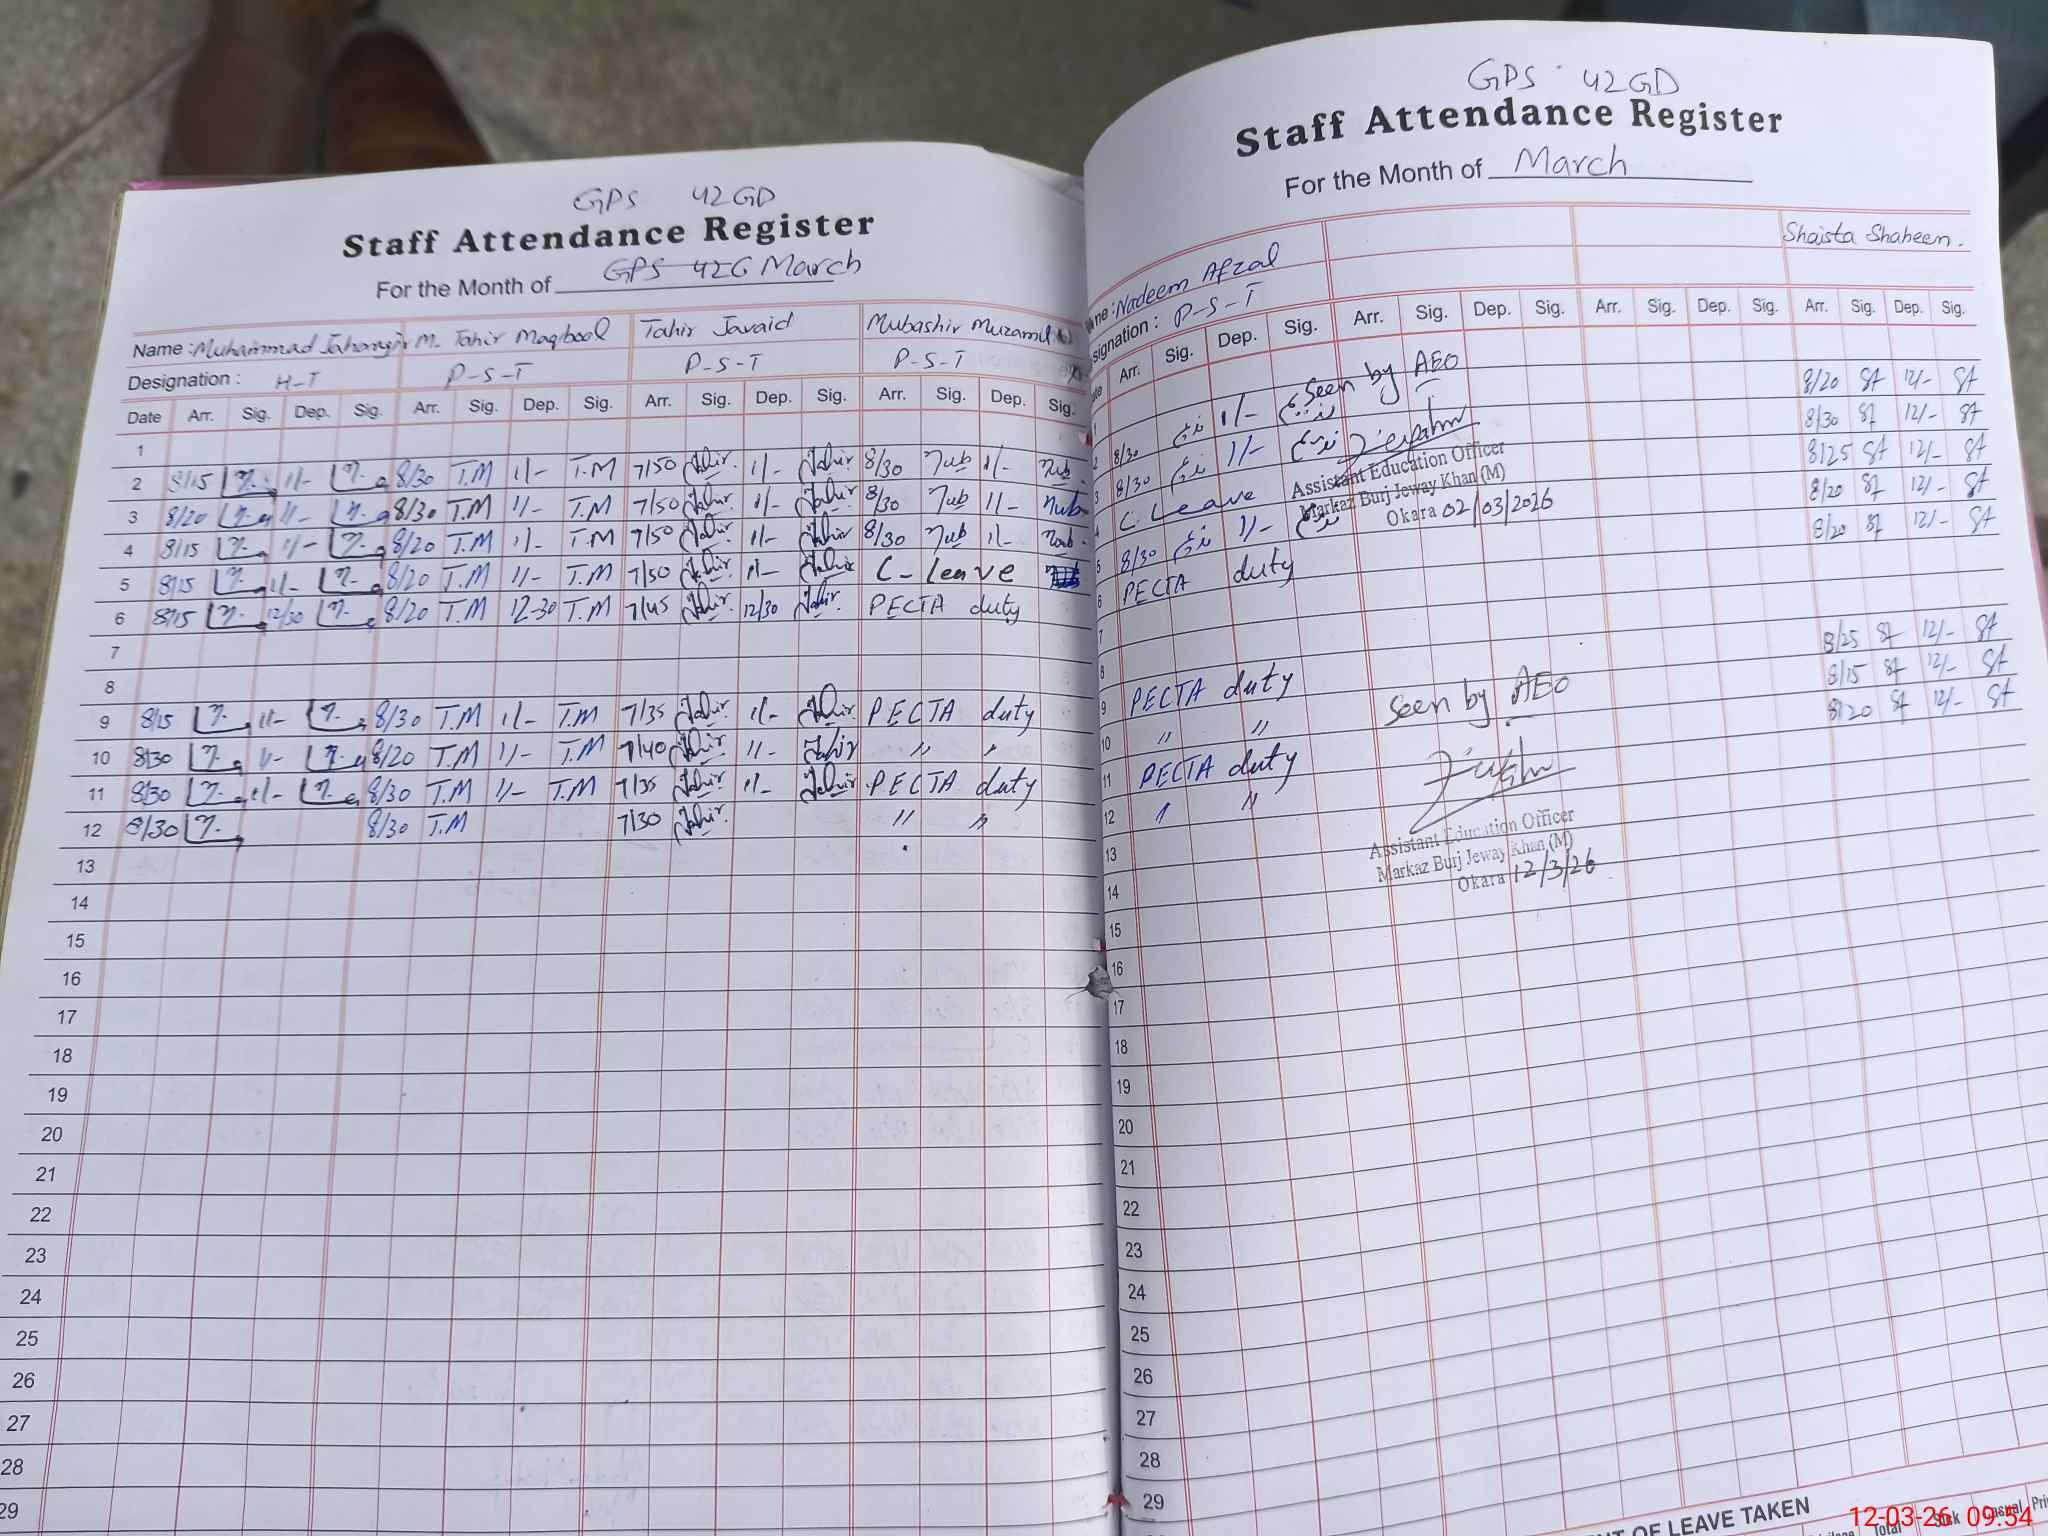 GPS 42GD
Staff Attendance Register
For the Month of GPS 42G March
Name: Muhammad Jahangir M. Tahir Maqbool Tahir Javaid Mubashir Muzamil
Designation: H-T P-S-T P-S-T P-S-T
Date Arr. Sig. Dep. Sig. Arr. Sig. Dep. Sig. Arr. Sig. Dep. Sig. Arr. Sig. Dep. Sig.
1
2 8/15 1/- 8/30 T.M 1/- T.M 7/50 Tahir 1/- Tahir 8/30 Mub 1/- Mub
3 8/20 1/- 8/30 T.M 1/- T.M 7/50 Tahir 1/- Tahir 8/30 Mub 1/- Mub
4 8/15 1/- 8/20 T.M 1/- T.M 7/50 Tahir 1/- Tahir 8/30 Mub 1/- Mub
5 8/15 1/- 8/20 T.M 1/- T.M 7/50 Tahir 1/- Tahir C-leave
6 8/15 12/30 8/20 T.M 12-30 T.M 7/45 Tahir 12/30 Tahir PECTA duty
7
8
9 8/15 1/- 8/30 T.M 1/- T.M 7/35 Tahir 1/- Tahir PECTA duty
10 8/30 1/- 8/20 T.M 1/- T.M 7/40 Tahir 1/- Tahir " "
11 8/30 1/- 8/30 T.M 1/- T.M 7/35 Tahir 1/- Tahir PECTA duty
12 8/30 8/30 T.M 7/30 Tahir " "
13
14
15
16
17
18
19
20
21
22
23
24
25
26
27
28
29
GPS 42GD
Staff Attendance Register
For the Month of March
Name: Nadeem Afzal Shaista Shaheen.
Designation: P-S-T
Date Arr. Sig. Dep. Sig. Arr. Sig. Dep. Sig. Arr. Sig. Dep. Sig. Arr. Sig. Dep. Sig.
1 Seen by AEO
2 8/30 ندیم 1/- ندیم 8/20 St 12/- St
3 8/30 ندیم 1/- ندیم 8/30 St 12/- St
Assistant Education Officer
Markaz Burj Jeway Khan (M)
Okara 02/03/2026
4 C. Leave 8/25 St 12/- St
5 8/30 ندیم 1/- ندیم 8/20 St 12/- St
6 PECTA duty 8/20 St 12/- St
7
8
9 PECTA duty 8/25 St 12/- St
10 " " 8/15 St 12/- St
11 PECTA duty 8/20 St 12/- St
12 " "
Seen by AEO
Assistant Education Officer
Markaz Burj Jeway Khan (M)
Okara 12/3/26
13
14
15
16
17
18
19
20
21
22
23
24
25
26
27
28
29
OF LEAVE TAKEN
Total Sick Casual
12-03-26 09:54